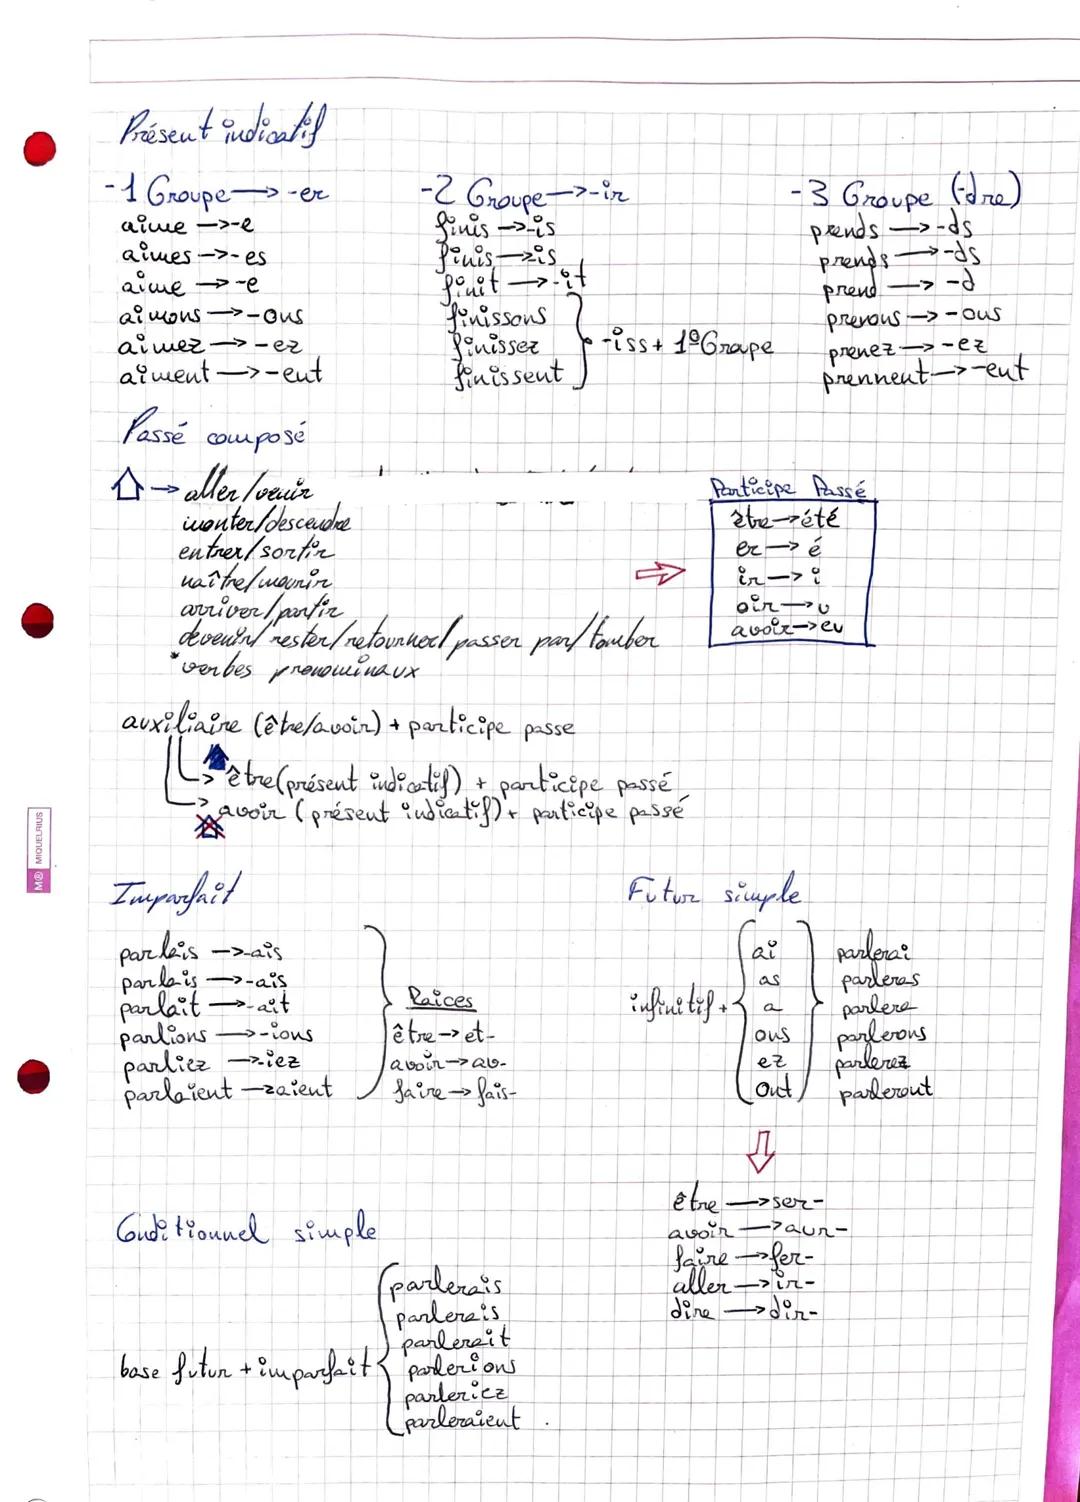 Présent indicatif
-1 Groupe → -er
aime → -e
aimes → -es
aime → -e
aimons → -ons
aimez → -ez
aiment → -ent
-2 Groupe → -ir
finis → -is
finis → -is
finit → -it
finissons
finissez
finissent
-iss + 1º Groupe
-3 Groupe (-dre)
prends → -ds
prends → -ds
prend → -d
prenons → -ons
prenez → -ez
prennent → -ent
Passé composé
→ aller/venir
monter/descendre
entrer/sortir
naître/mourir
arriver/partir
devenir/rester/retourner/passer par/tomber
*verbes pronominaux
Participe Passé
être → été
er → é
ir → i
oir → u
avoir → eu
auxiliaire (être/avoir) + participe passe
→ être (présent indicatif) + participe passé
→ avoir (présent indicatif) + participe passé
M® MIQUELRIUS
Imparfait
parlais → -ais
parlais → -ais
parlait → -ait
parlions → -ions
parliez → -iez
parlaient → -aient
Raices
être → et-
avoir → av-
faire → fais-
Futur simple
infinitif +
ai
as
a
ons
ez
ont
parlerai
parleras
parlera
parlerons
parlerez
parleront
être → ser-
avoir → aur-
faire → fer-
aller → ir-
dire → dir-
Conditionnel simple
base futur + imparfait
parlerais
parlerais
parlerait
parlerions
parleriez
parleraient.